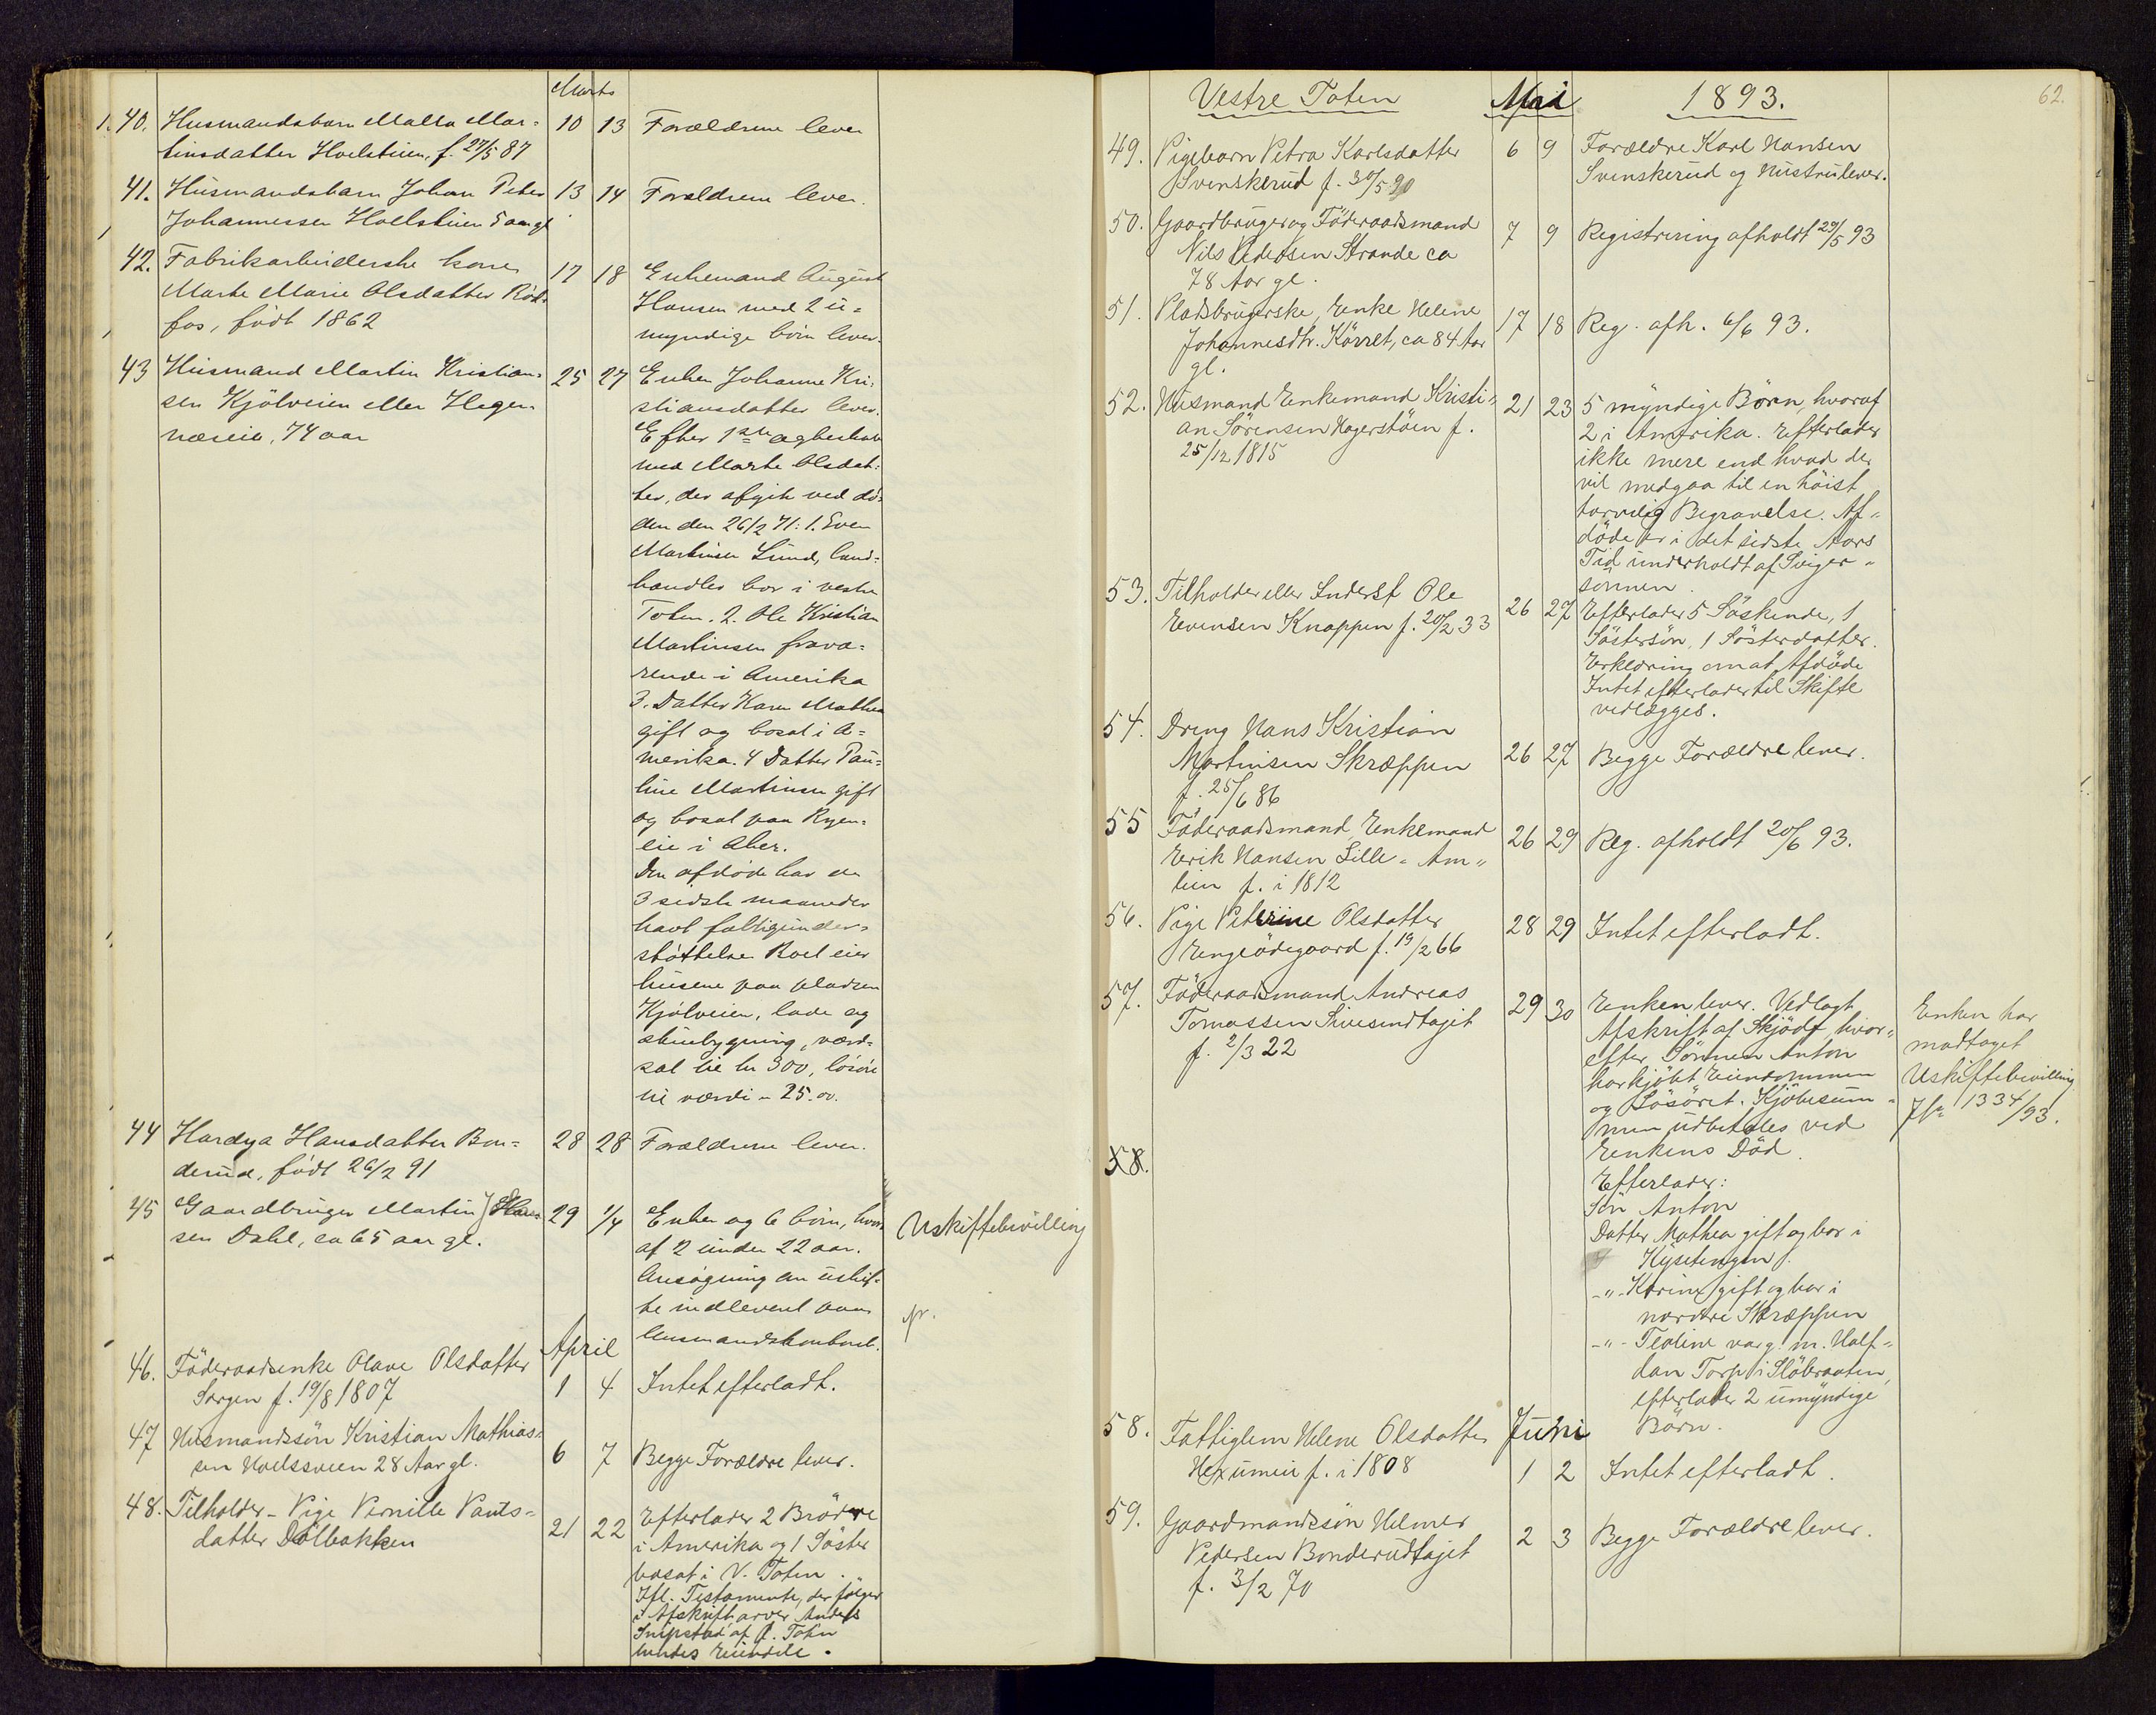 Marts
1. 40. Husmandsbarn Malla Mar=
tinsdatter Hoelstuen, f. 27/5 87
10 13 Forældrene lever
41. Husmandsbarn Johan Peter
Johannessen Hoelstuen 5 aar gl
13 14 Forældrene lever.
42. Fabrikarbeiderske kone
Marte Marie Olsdatter Rød=
fos, født 1862
17 18 Enkemand August
Hansen med 2 u=
myndige børn lever.
43 Husmand Martin Kristian=
sen Kjölveien eller Hegern
næseie, 74 aar
25 27 Enken Johanne Kri=
stiansdatter lever.
Efter 1ste ægteskab
med Marte Olsdat=
ter, der afgik ved dø=
den den 26/2 71: 1. Even
Martinsen Lund, land=
handler bor i vestre
Toten. 2. Ole Kristian
Martinsen fravæ=
rende i Amerika
3. Datter Karen Mathea
gift og bosat i A=
merika. 4 Datter Pau=
line Martinsen gift
og bosat paa Ryen=
eie i Aker.
Den afdøde har de
3 sidste maaneder
havt fattigunder=
støttelse Boet eier
husene paa pladsen
Kjölveien, lade og
stuebygning, værd=
sat til kr 300, løsøre
til værdi - 25.00.
44 Hardya Hansdatter Bon=
derud, født 26/2 91
28 28 Forældrene lever.
45 Gaardbruger Martin J Han=
sen Dahl, ca 65 aar gl.
29 1/4 Enken og 6 børn, hvor
af 2 under 22 aar.
Ansøgning om uskif=
te indleveret paa
lensmandskontoret.
Uskiftebevilling
April
46. Föderaadsenke Olave Olsdatter
Sorgen f. 19/8 1807
1 4 Intet efterladt.
47 Husmandssön Kristian Mathias=
sen Hoelssveen 28 Aar gl.
6 7 Begge Forældre lever.
48. Tilholder - Pige Pernille Pauls=
datter Dölbakken
21 22 Efterlader 2 Brödre
i Amerika og 1 Söster
bosat i V. Toten.
Ifl. Testamente, der fölger
i Afskrift arver Anders
Snipstad af Ö. Toten
hendes Eiendele.
Vestre Toten Mai 1893.
62.
49. Pigebarn Petra Karlsdatter
Svenskerud f. 30/5 90
6 9 Forældre Karl Hansen
Svenskerud og Hustru lever.
50. Gaardbruger og Föderaadsmand
Nils Pedersen Strande ca
78 Aar gl.
7 9 Registrering afholdt 29/5 93
51. Pladsbrugerske, Enke Helene
Johannesdtr. Körret, ca 84 Aar
gl.
17 18 Reg. afh. 6/6 93.
52. Husmand Enkemand Kristi=
an Sörensen Hagerstöen f.
25/12 1815
21 23 5 myndige Börn, hvoraf
2 i Amerika. Efterlader
ikke mere end hvad der
vil medgaa til en höist
tarvelig Begravelse. Af=
döde er i det sidste Aars
Tid underholdt af Sviger=
sönnen.
53. Tilholder eller Inderst Ole
Evensen Knappen f. 20/2 33
26 27 Efterlader 5 Söskende, 1
Söstersön, 1 Sösterdatter.
Erklæring om at Afdöde
Intet efterlader til Skifte
vedlægges.
54. Dreng Hans Kristian
Martinsen Skræppen
f. 25/6 86
26 27 Begge Forældre lever.
55 Föderaadsmand Enkemand
Erik Hansen Lille - Am=
lien f. i 1812
26 29 Reg. afholdt 20/6 93.
56. Pige Peterine Olsdatter
Engeödegaard f. 19/2 66
28 29 Intet efterladt.
57. Föderaadsmand Andreas
Tomassen Sivesindtajet
f. 2/3 22
29 30 Enken lever. Vedlagt
Afskrift af Skjöde, hvor=
efter Sönnen Anton
har kjöbt Eiendommen
og Lösöret. Kjöbesum=
men udbetales ved
Enkens Död.
Efterlader:
Sön Anton
Datter Mathea gift og bor i
Kysetengen.
-"- Karine gift og bor i
nordre Skræppen
-"- Teoline var g. m. Half=
dan Torp i Slöbraaten,
efterlader 2 umyndige
Börn.
Enken har
modtaget
Uskiftebevilling
Jfr 1334/93.
58.
58. Fattiglem Helene Olsdatter
Hexumeie f. i 1808
Juni
1 2 Intet efterladt.
59. Gaardmandssön Helmer
Pedersen Bonderudtajet
f. 3/2 70
2 3 Begge Forældre lever.